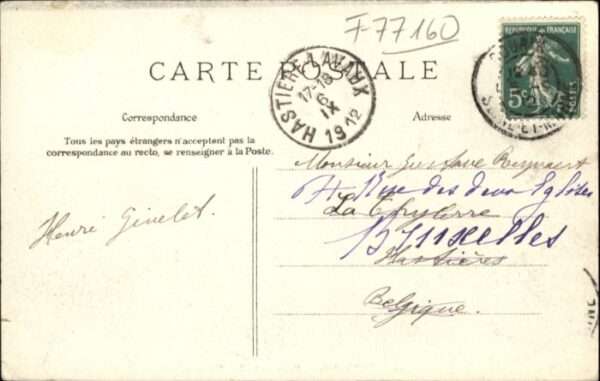 F-77160
RÉPUBLIQUE FRANÇAISE
5c
POSTES
SEINE-ET-M
CARTE POSTALE
HASTIERE-LAVAUX
17-18
6
IX
1912
Correspondance
Adresse
Tous les pays étrangers n'acceptent pas la
correspondance au recto, se renseigner à la Poste.
Henri Ginelet.
Monsieur Gustave
Rue des deux Eglises
La
Bruxelles
Hastières
Belgique.